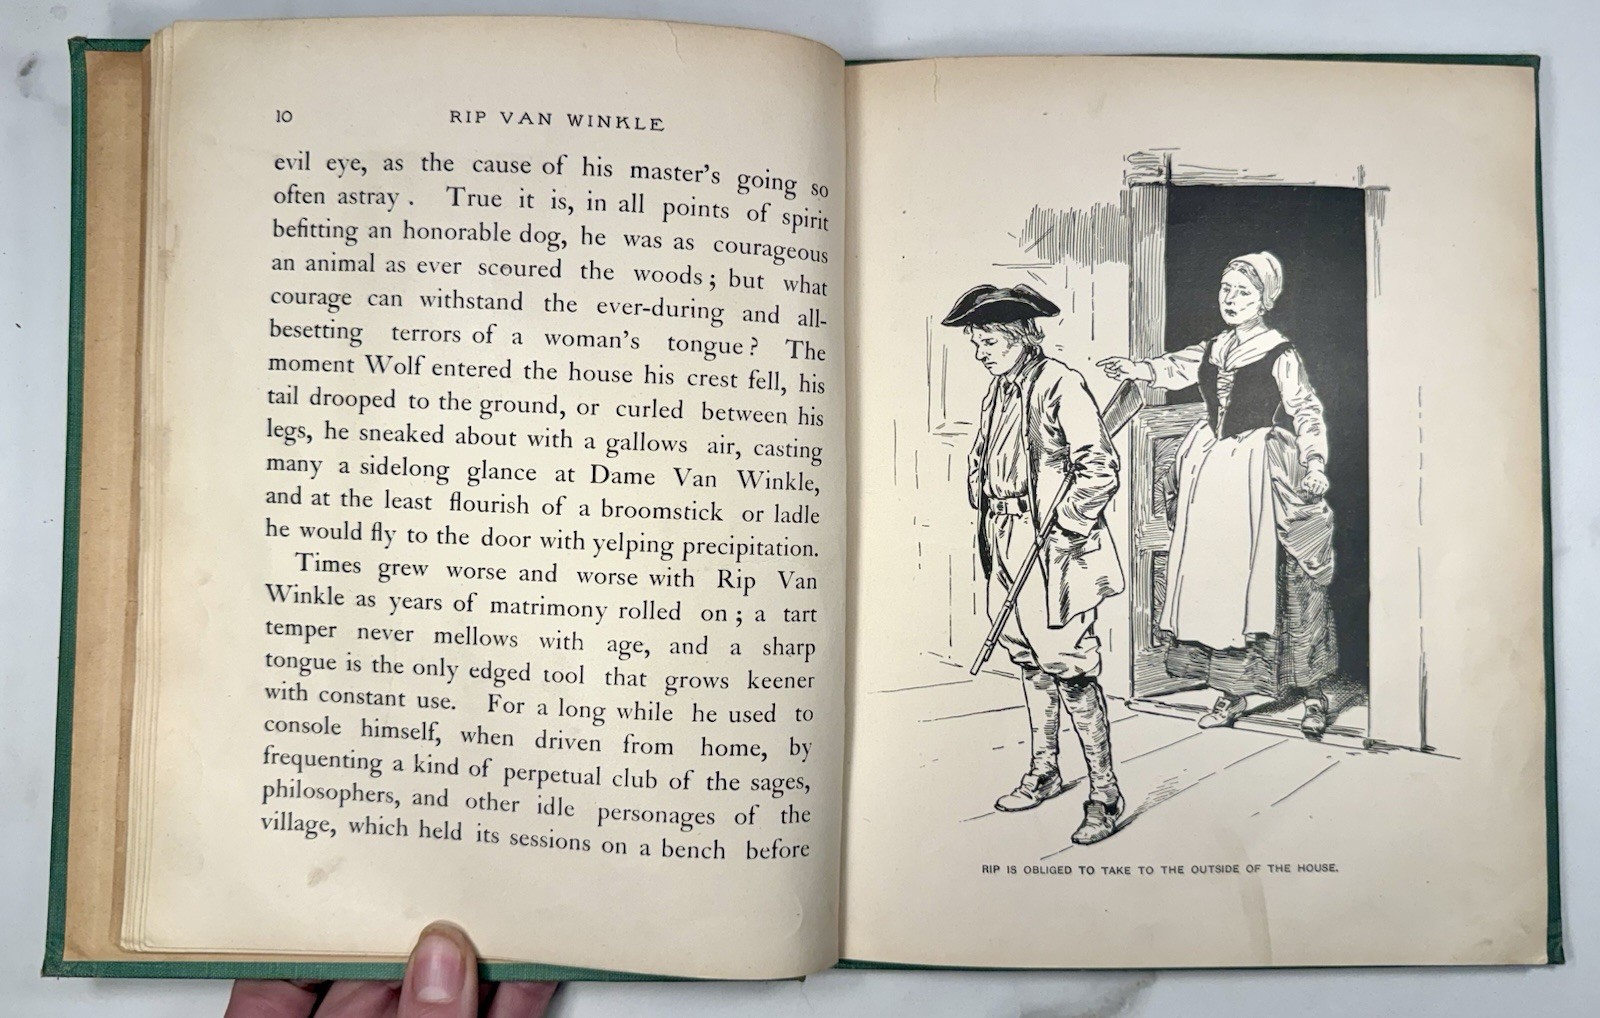 10 RIP VAN WINKLE
evil eye, as the cause of his master's going so
often astray . True it is, in all points of spirit
befitting an honorable dog, he was as courageous
an animal as ever scoured the woods ; but what
courage can withstand the ever-during and all-
besetting terrors of a woman's tongue ? The
moment Wolf entered the house his crest fell, his
tail drooped to the ground, or curled between his
legs, he sneaked about with a gallows air, casting
many a sidelong glance at Dame Van Winkle,
and at the least flourish of a broomstick or ladle
he would fly to the door with yelping precipitation.
Times grew worse and worse with Rip Van
Winkle as years of matrimony rolled on ; a tart
temper never mellows with age, and a sharp
tongue is the only edged tool that grows keener
with constant use. For a long while he used to
console himself, when driven from home, by
frequenting a kind of perpetual club of the sages,
philosophers, and other idle personages of the
village, which held its sessions on a bench before
RIP IS OBLIGED TO TAKE TO THE OUTSIDE OF THE HOUSE.